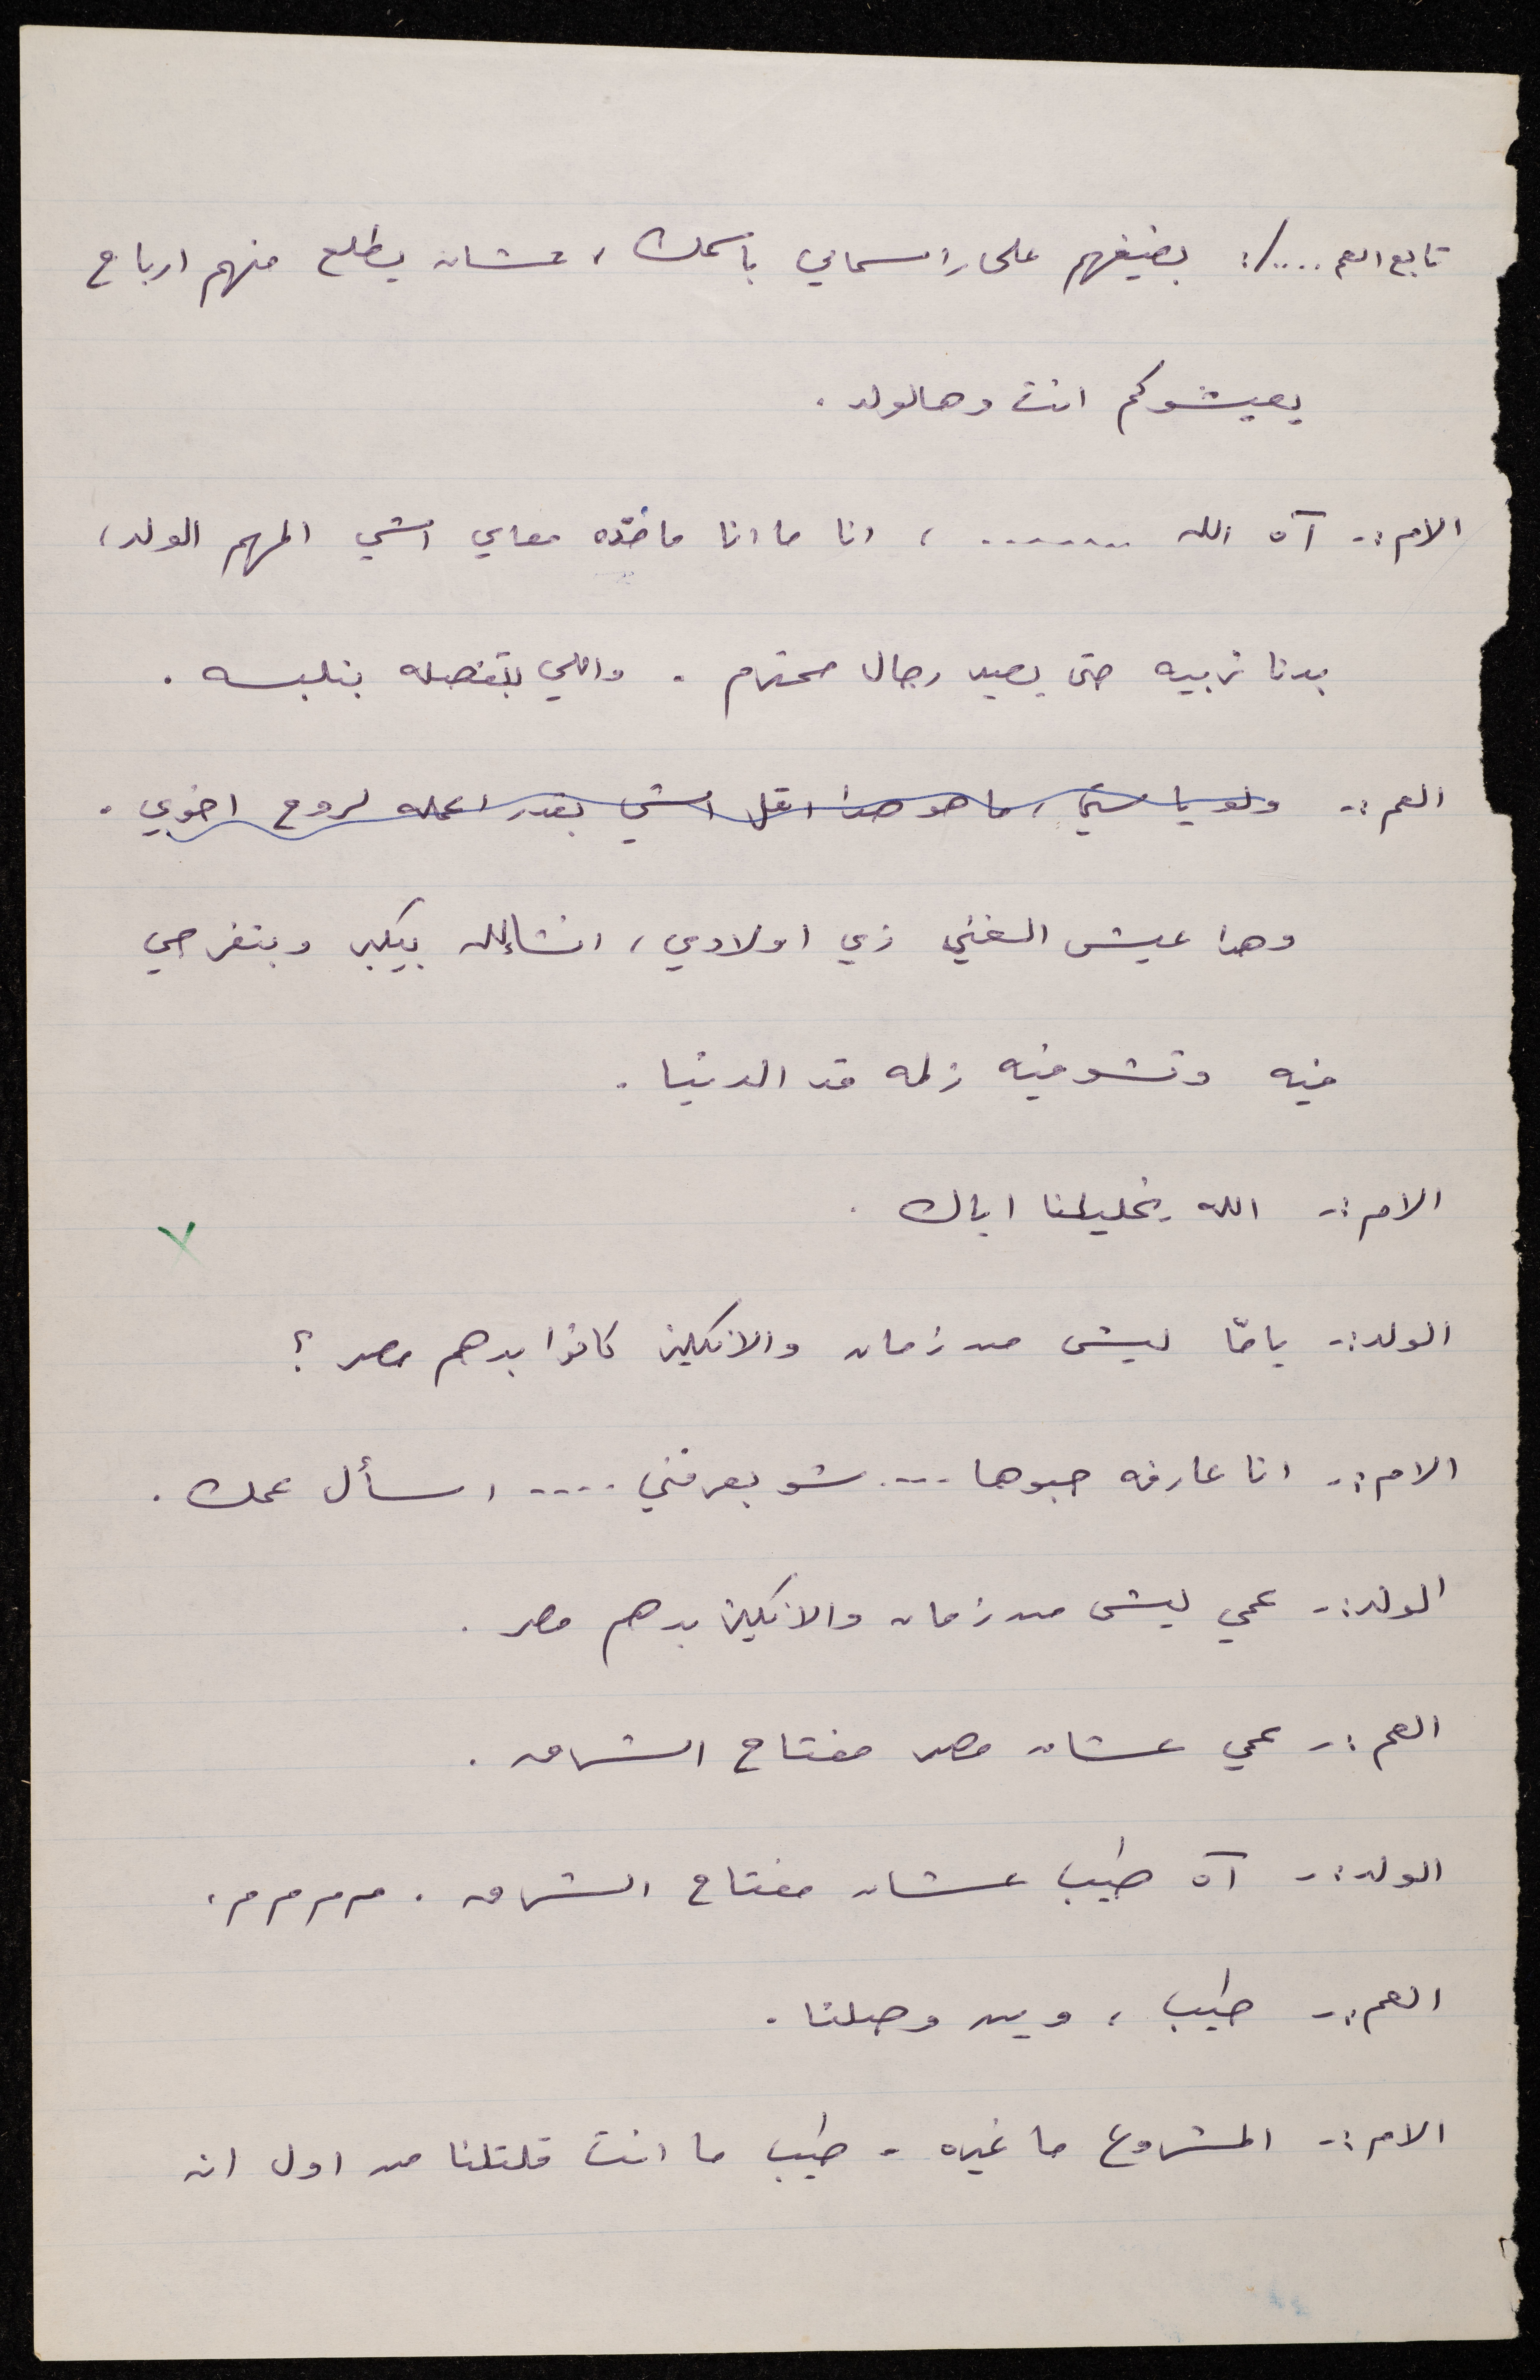 تابع العم ..../: بضيفهم على راسمالي باسمك ، عشان يطلع منهم ارباح
يعيشوكم انت وهالولد .
الام :- آه الله ........ ، انا ما انا ماخذه معاي اشي المهم الولد ،
بدنا نربيه حتى يصير رجال محترم . واللي بتفصله بنلبسه .
العم :- ولو يا ستي ، ما هو هذا اقل اشي بقدر اعمله لروح اخوي .
وهذا عيش الغني زي اولادي ، انشاالله بيكبر وبتفرحي
فيه وتشوفيه زلمه قد الدنيا .
الام :- الله يخليلنا اياك .
الولد :- يامّا ليش من زمان والانكليز كانوا بدهم مصر ؟
الام :- انا عارفه حبوها .... شو بعرفني .... اسأل عمك .
الولد :- عمي ليش من زمان والانكليز بدهم مصر .
العم :- عمي عشان مصر مفتاح الشرق .
الولد :- آه طيب عشان مفتاح الشرق . م م م م م .
العم :- طيب ، وين وصلنا .
الام :- المشروع ما غيره . طيب ما انت قلتلنا من اول انه